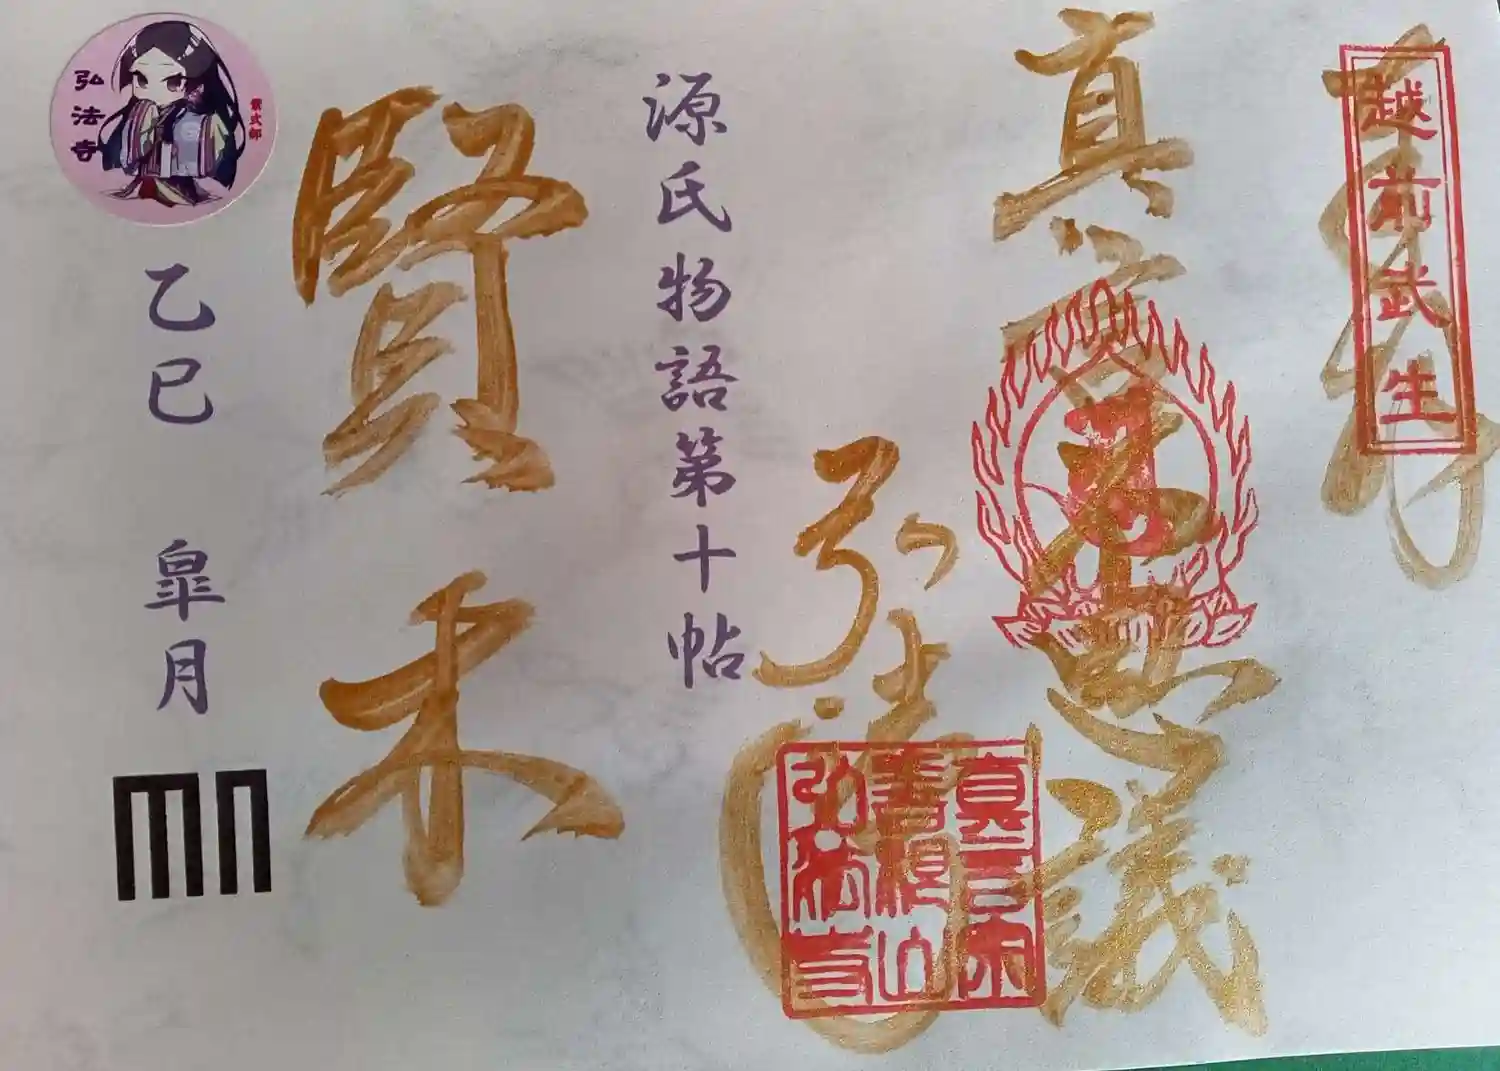 奉拝
越前武生
真言不思議
弘法寺
真言宗
善根山
弘法寺
源氏物語第十帖
賢木
紫式部
弘法寺
乙巳 皐月